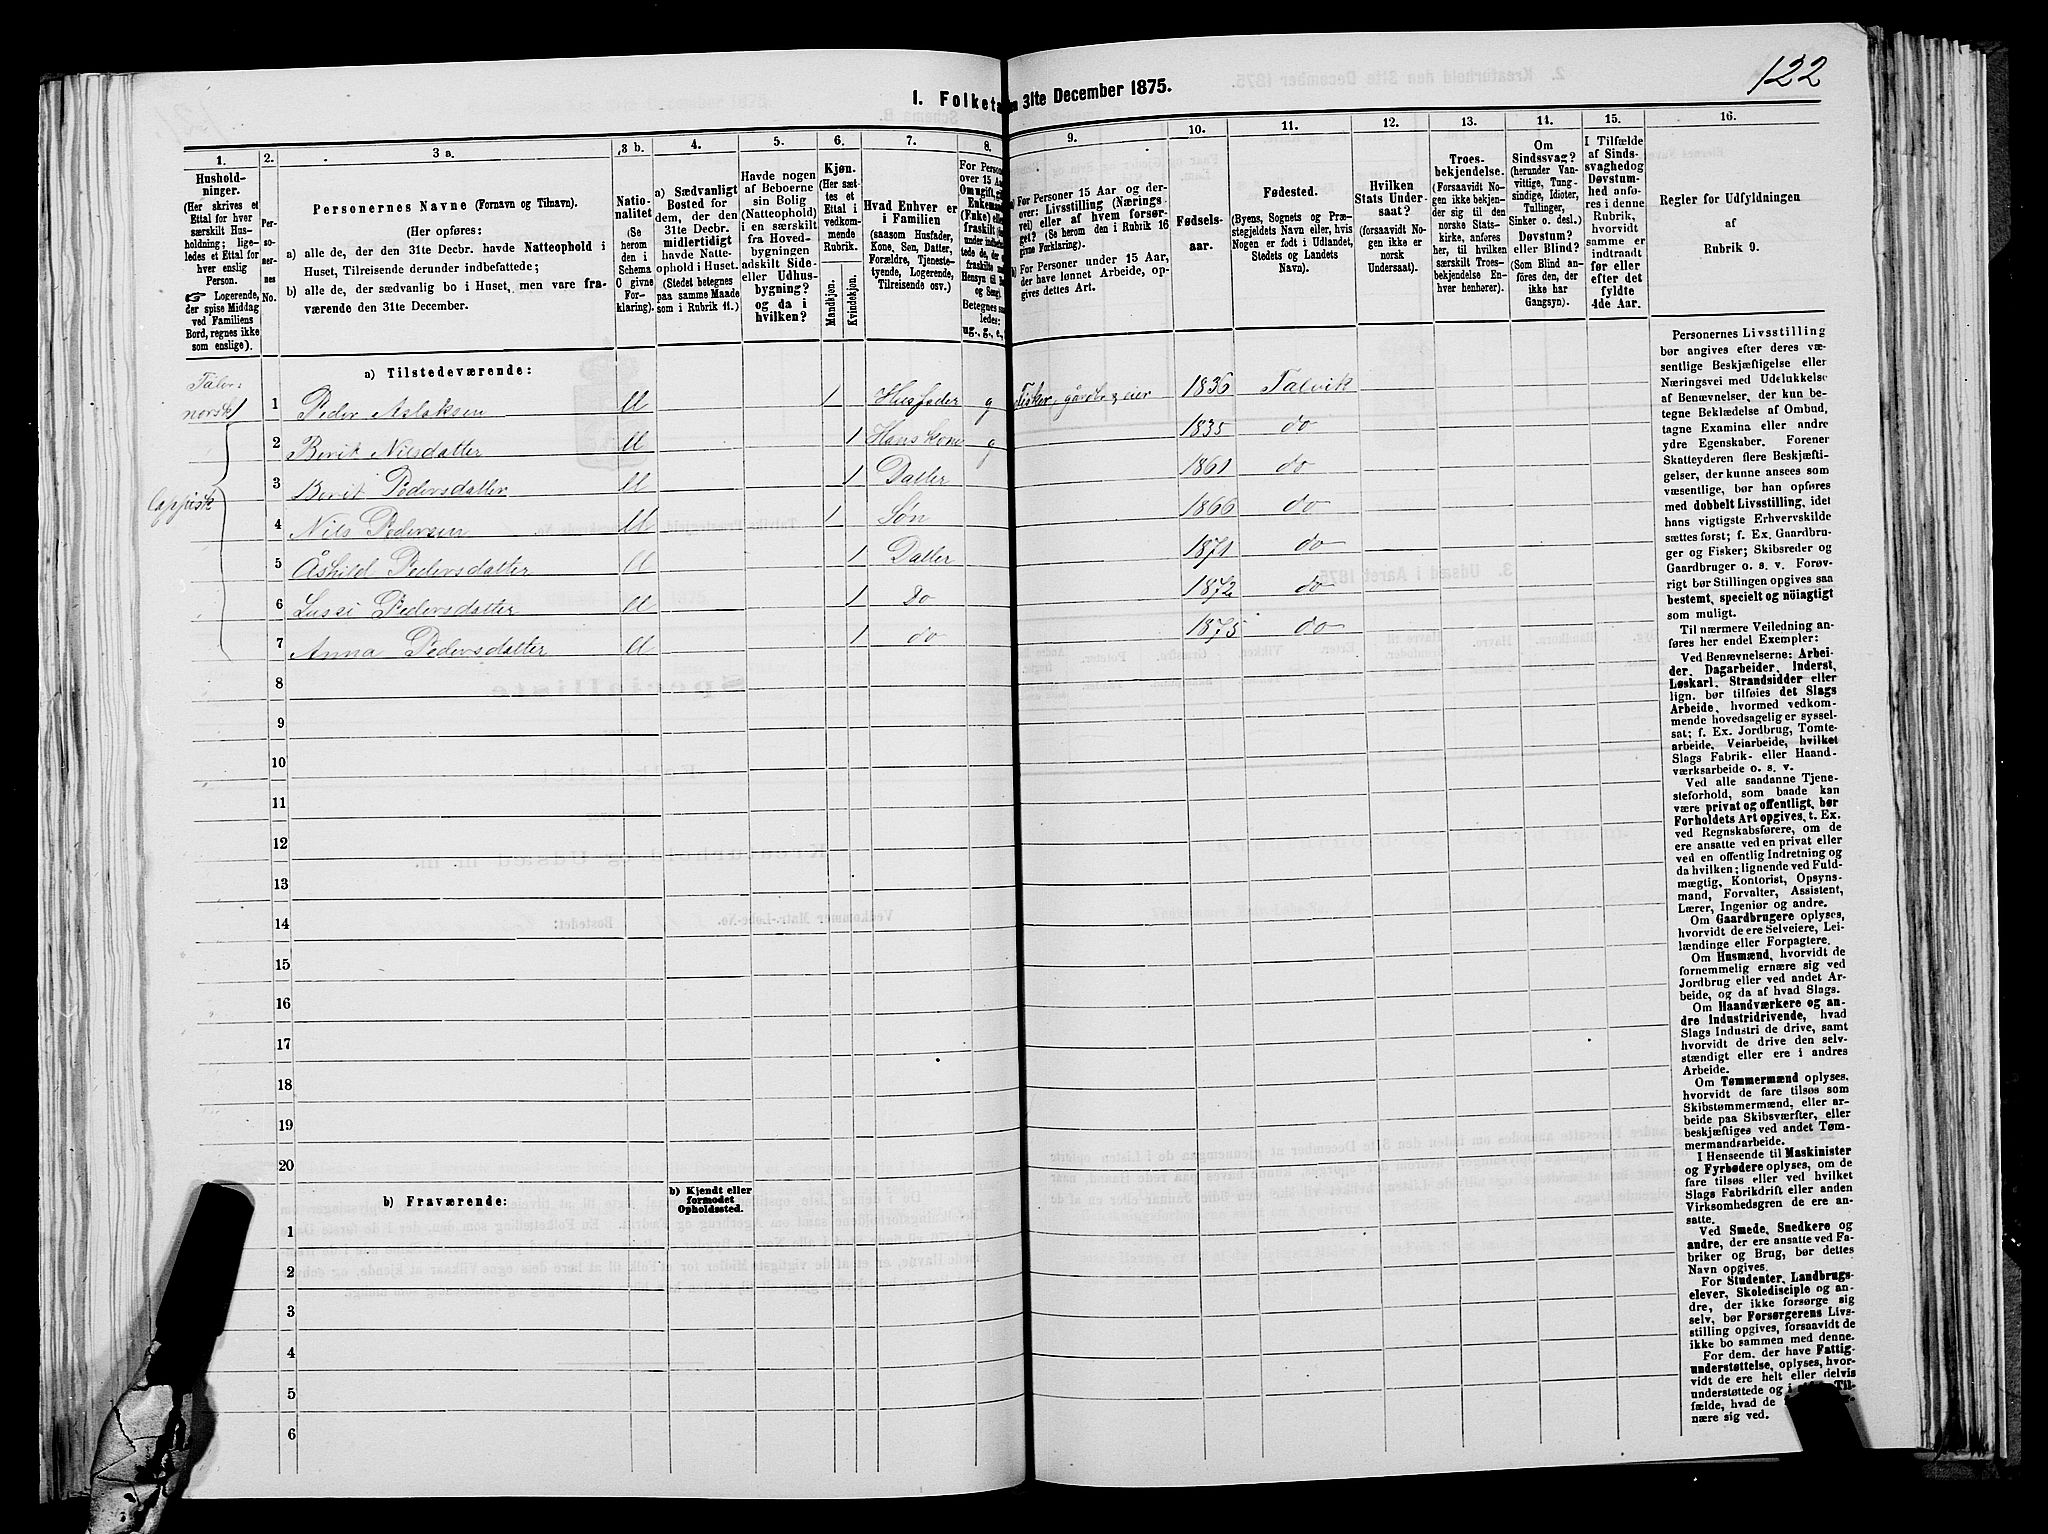 122
I. Folketa
n 31te December 1875.
1.
Hushold-
ninger.
(Her skrives et
Ettal for hver
særskilt Hus-
holdning; lige-
ledes et Ettal for
hver enslig
Person.
Logerende,
der spise Middag
ved Familiens
Bord, regnes ikke
som enslige).
2.
Per-
so-
ner-
nes
No.
3 a.
Personernes Navne (Fornavn og Tilnavn).
(Her opføres:
a) alle de, der den 31te Decbr. havde Natteophold i
Huset, Tilreisende derunder indbefattede;
b) alle de, der sædvanlig bo i Huset, men vare fra-
værende den 31te December.
3 b.
Natio-
nalitet
(Se
herom
den i
Schema
C givne
For-
klaring).
4.
a) Sædvanligt
Bosted for
dem, der den
31te Decbr.
midlertidigt
havde Natte-
ophold i Huset.
(Stedet betegnes
paa samme Maade
som i Rubrik 11.)
5.
Havde nogen
af Beboerne
sin Bolig
(Natteophold)
i en særskilt
fra Hoved-
bygningen
adskilt Side-
eller Udhus-
bygning?
og da i
hvilken?
6.
Kjøn.
(Her sæt-
tes et
Ettal i
vedkom-
mende
Rubrik.
Mandkjøn.
Kvindekjøn.
7.
Hvad Enhver er
i Familien
(saasom Husfader,
Kone, Søn, Datter,
Forældre, Tjeneste-
tyende, Logerende,
Tilreisende osv.)
8.
For Person
over 15 Aa
Om ugift, gi
Enkeman
(Enke) elle
fraskilt (so
Betegnes saa
ledes:
ug., g., e.,
9.
a) For Personer 15 Aar og der-
over: Livsstilling (Nærings-
vei) eller af hvem forsør-
get? (Se herom den i Rubrik 16
givne Forklaring).
b) For Personer under 15 Aar,
der have lønnet Arbeide, op-
gives dettes Art.
10.
Fødsels-
aar.
11.
Fødested.
(Byens, Sognets og Præ-
stegjeldets Navn eller, hvis
Nogen er født i Udlandet,
Stedets og Landets
Navn).
12.
Hvilken
Stats Under-
saat?
(forsaavidt No-
gen ikke er
norsk
Undersaat).
13.
Troes-
bekjendelse.
(Forsaavidt No-
gen ikke bekjen-
der sig til den
norske Stats-
kirke, anføres
her, til hvilken
særskilt Troes-
bekjendelse En-
hver henhører).
14.
Om
Sindssvag?
(herunder Van-
vittige, Tung-
sindige, Idioter,
Tullinger,
Sinker o. desl.)
Døvstum?
eller Blind?
(Som Blind an-
føres den, der
ikke har
Gangsyn).
15.
I Tilfælde
af Sinds-
svaghed og
Døvstum-
hed anfø-
res i denne
Rubrik,
hvorvidt
samme er
indtraadt
før eller
efter det
fyldte
4de Aar.
16.
Regler for Udfyldningen
af
Rubrik 9.
a) Tilstedeværende:
norsk 1
1 Peder Aslaksen 1 Husfader g 1836 Talvik
2 Berit Nilsdatter 1 Hans kone g 1835 do
3 Berit Pedersdatter 1 Datter 1861 do
Lappisk
4 Nils Pedersen 1 Søn 1866 do
5 Åshild Pedersdatter 1 Datter 1871 do
6 Lussi Pedersdatter 1 Do 1872 do
7 Anna Pedersdatter 1 do 1875 do
8
9
10
11
12
13
14
15
16
17
18
19
20
b) Fraværende:
b) Kjendt eller
formodet
Opholdssted.
1
2
3
4
5
6
Personernes Livsstilling
bør angives efter deres væ-
sentlige Beskjæftigelse eller
Næringsvei med Udelukkelse
af Benævnelser, der kun be-
tegne Beklædelse af Ombud,
tagne Examina eller andre
ydre Egenskaber. Forener
Skatteyderen flere Beskjæfti-
gelser, der kunne ansees som
væsentlige, bør han opføres
med dobbelt Livsstilling, idet
hans vigtigste Erhvervskilde
sættes først; f. Ex. Gaardbru-
ger og Fisker; Skibsreder og
Gaardbruger o. s. v. Forøv-
rigt bør Stillingen opgives saa
bestemt, specielt og nöiagtigt
som muligt.
Til nærmere Veiledning an-
føres her endel Exempler:
Ved Benævnelserne: Arbei-
der, Dagarbeider, Inderst,
Løskarl, Strandsidder eller
lign. bør tilføies det Slags
Arbeide, hvormed vedkom-
mende hovedsagelig er syssel-
sat; f. Ex. Jordbrug, Tomte-
arbeide, Veiarbeide, hvilket
Slags Fabrik- eller Haand-
værksarbeide o. s. v.
Ved alle saadanne Tjene-
steforhold, som baade kan
være privat og offentligt, bør
Forholdets Art opgives, t. Ex.
ved Regnskabsførere, om de
ere ansatte ved en privat eller
ved en offentlig Indretning og
da hvilken; lignende ved Fuld-
mægtig, Kontorist, Opsyns-
mand, Forvalter, Assistent,
Lærer, Ingeniør og andre.
Om Gaardbrugere oplyses,
hvorvidt de ere Selveiere, Lei-
lændinge eller Forpagtere.
Om Husmænd, hvorvidt de
fornemmelig ernære sig ved
Jordbrug eller ved andet Ar-
beide, og da af hvad Slags.
Om Haandværkere og an-
dre Industridrivende, hvad
Slags Industri de drive, samt
hvorvidt de drive den selv-
stændigt eller ere i andres
Arbeide.
Om Tømmermænd oplyses,
hvorvidt de fare tilsøs som
Skibstømmermænd, eller ar-
beide paa Skibsværfter, eller
beskjæftiges ved andet Tøm-
mermandsarbeide.
I Henseende til Maskinister
og Fyrbødere oplyses, om de
fare tilsøs eller ved hvilket
Slags Fabrikdrift eller anden
Virksomhedsgren de ere an-
satte.
Ved Smede, Snedkere og
andre, der ere ansatte ved Fa-
briker og Brug, bør dettes
Navn opgives.
For Studenter, Landbrugs-
elever, Skoledisciple og an-
dre, der ikke forsørge sig
selv, bør Forsørgerens Livs-
stilling opgives, forsaavidt de
ikke bo sammen med denne.
For dem, der have Fattig-
understøttelse, oplyses, hvor-
vidt de ere helt eller delvis
understøttede og i Til-
fælde, hvad de
nære sig ved.